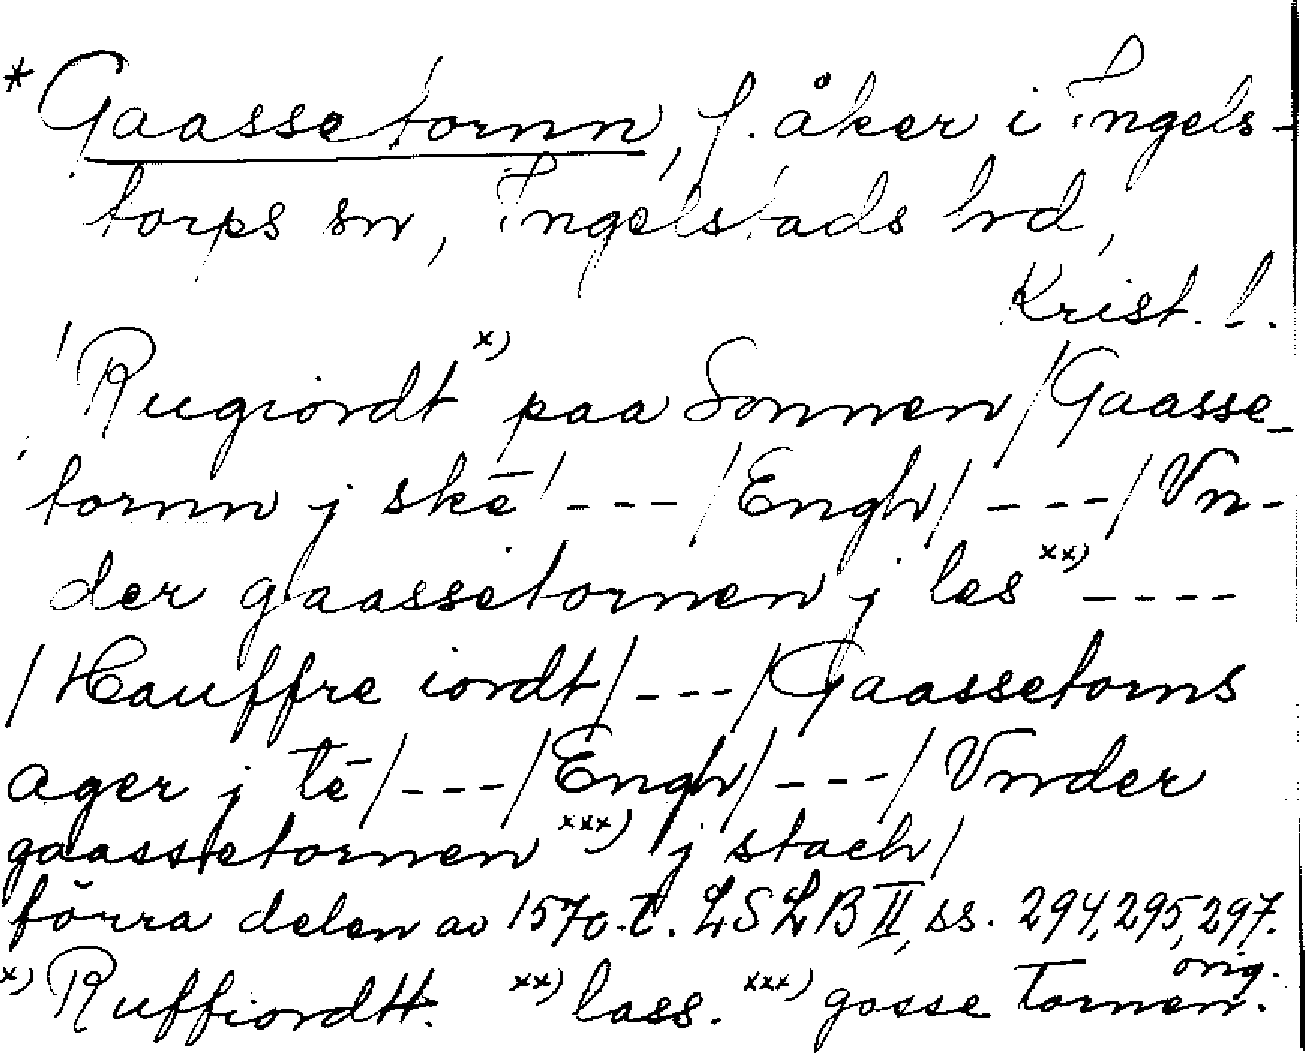 *Gaassetornn, f. åker i Ingels-
torps sn, Ingelstads hd,
Krist. l.
/Rugiordt x) paa Sonnen/Gaasse-
tornn j skē/---/Engh/---/Vn-
der gaassetornen j les xx) ----
/Hauffre iordt/---/Gaassetorns
ager j tē/---/Engh/---/Vnder
gaassetornen xxx) j stach/
förra delen av 1570-t. LSLB II, ss. 294, 295, 297.
orig.
x) Ruffiordtt. xx) lass. xxx) gosse Tornen.